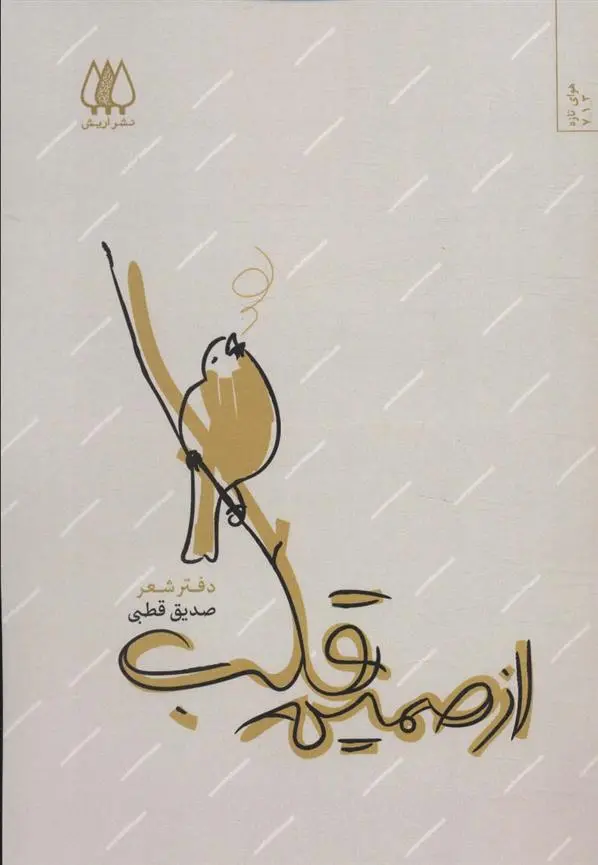 نشر اریش
هوای تازه
۷۱۳
دفتر شعر
صدیق قطبی
از صمیم قلب